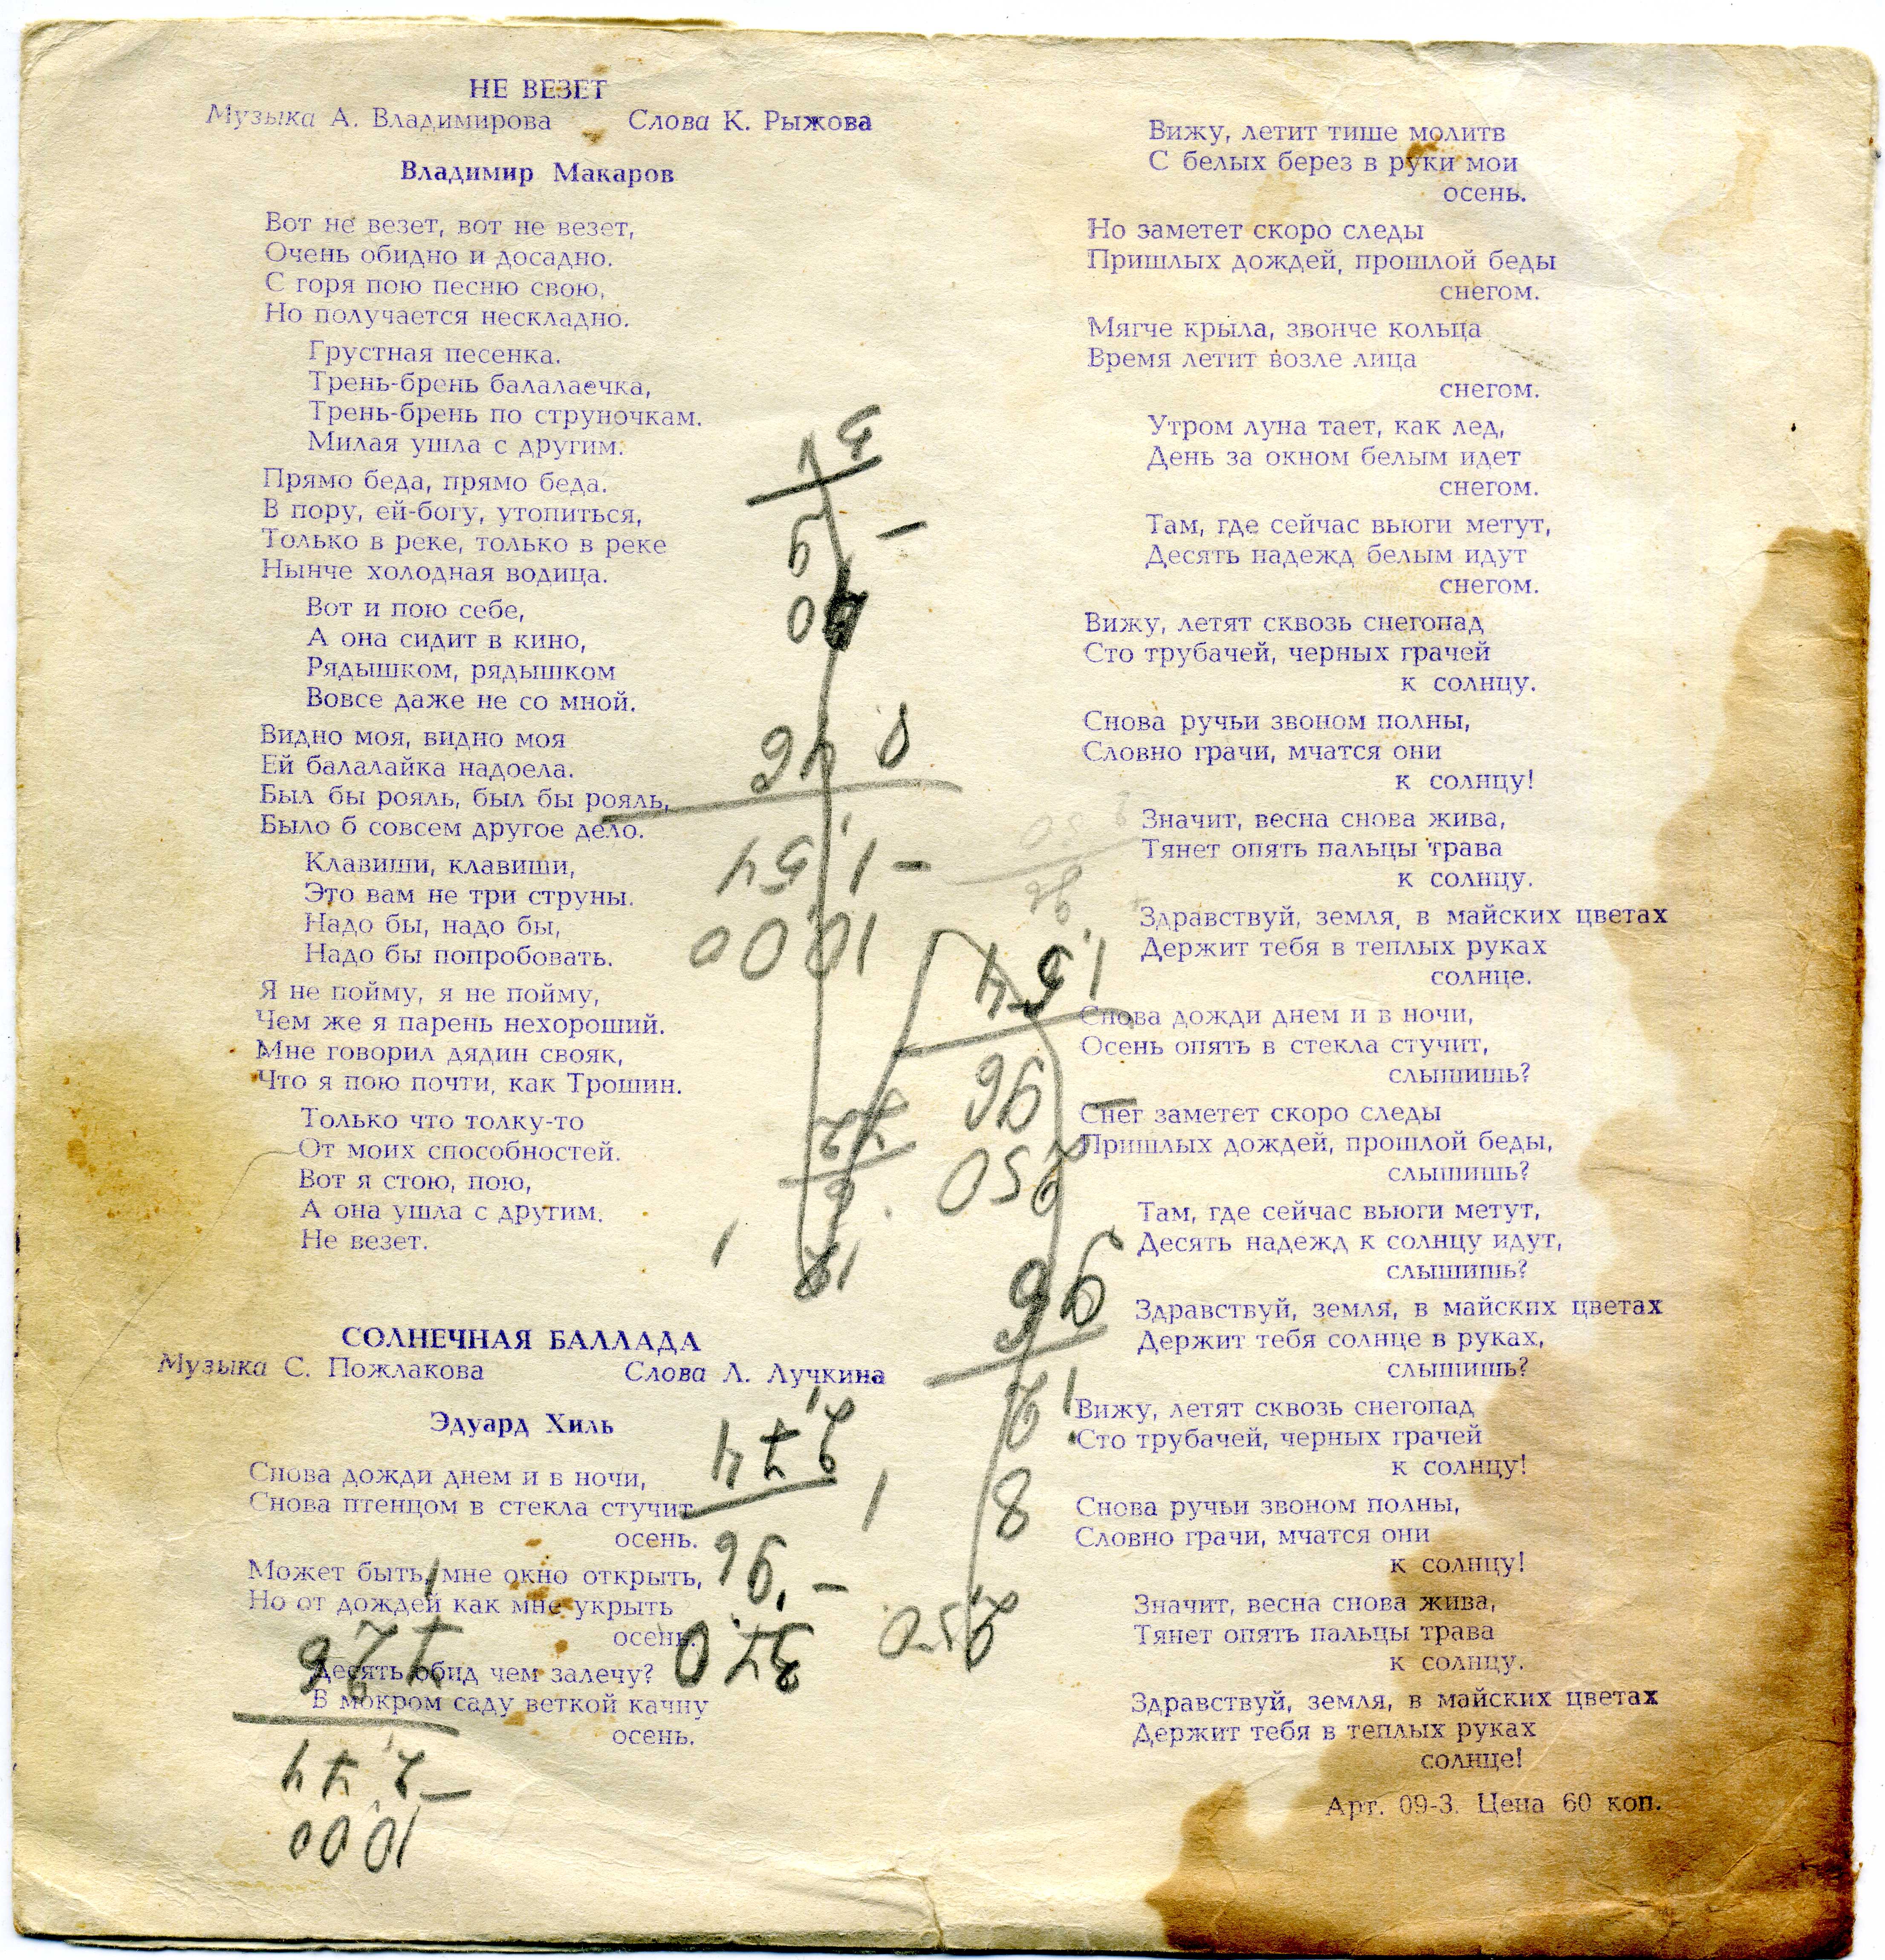 НЕ ВЕЗЕТ
Музыка А. Владимирова Слова К. Рыжова
Владимир Макаров
Вот не везет, вот не везет,
Очень обидно и досадно.
С горя пою песню свою,
Но получается нескладно.
Грустная песенка.
Трень-брень балалаечка,
Трень-брень по струночкам.
Милая ушла с другим.
Прямо беда, прямо беда.
В пору, ей-богу, утопиться,
Только в реке, только в реке
Нынче холодная водица.
Вот и пою себе,
А она сидит в кино,
Рядышком, рядышком
Вовсе даже не со мной.
Видно моя, видно моя
Ей балалайка надоела.
Был бы рояль, был бы рояль,
Было б совсем другое дело.
Клавиши, клавиши,
Это вам не три струны.
Надо бы, надо бы,
Надо бы попробовать.
Я не пойму, я не пойму,
Чем же я парень нехороший.
Мне говорил дядин свояк,
Что я пою почти, как Трошин.
Только что толку-то
От моих способностей.
Вот я стою, пою,
А она ушла с другим.
Не везет.
СОЛНЕЧНАЯ БАЛЛАДА
Музыка С. Пожлакова Слова Л. Лучкина
Эдуард Хиль
Снова дожди днем и в ночи,
Снова птенцом в стекла стучит
осень.
Может быть, мне окно открыть,
Но от дождей как мне укрыть
осень.
Десять обид чем залечу?
В мокром саду веткой качну
осень.
Вижу, летит тише молитв
С белых берез в руки мои
осень.
Но заметет скоро следы
Пришлых дождей, прошлой беды
снегом.
Мягче крыла, звонче кольца
Время летит возле лица
снегом.
Утром луна тает, как лед,
День за окном белым идет
снегом.
Там, где сейчас вьюги метут,
Десять надежд белым идут
снегом.
Вижу, летят сквозь снегопад
Сто трубачей, черных грачей
к солнцу.
Снова ручьи звоном полны,
Словно грачи, мчатся они
к солнцу!
Значит, весна снова жива,
Тянет опять пальцы трава
к солнцу.
Здравствуй, земля, в майских цветах
Держит тебя в теплых руках
солнце.
Снова дожди днем и в ночи,
Осень опять в стекла стучит,
слышишь?
Снег заметет скоро следы
Пришлых дождей, прошлой беды,
слышишь?
Там, где сейчас вьюги метут,
Десять надежд к солнцу идут,
слышишь?
Здравствуй, земля, в майских цветах
Держит тебя солнце в руках,
слышишь?
Вижу, летят сквозь снегопад
Сто трубачей, черных грачей
к солнцу!
Снова ручьи звоном полны,
Словно грачи, мчатся они
к солнцу!
Значит, весна снова жива,
Тянет опять пальцы трава
к солнцу.
Здравствуй, земля, в майских цветах
Держит тебя в теплых руках
солнце!
Арт. 09-3. Цена 60 коп.
10.00
-2.74
7.26
3.70
-.96
2.74
2.50
8
12
96
250
-96
1.54
10.00
-1.54
8.46